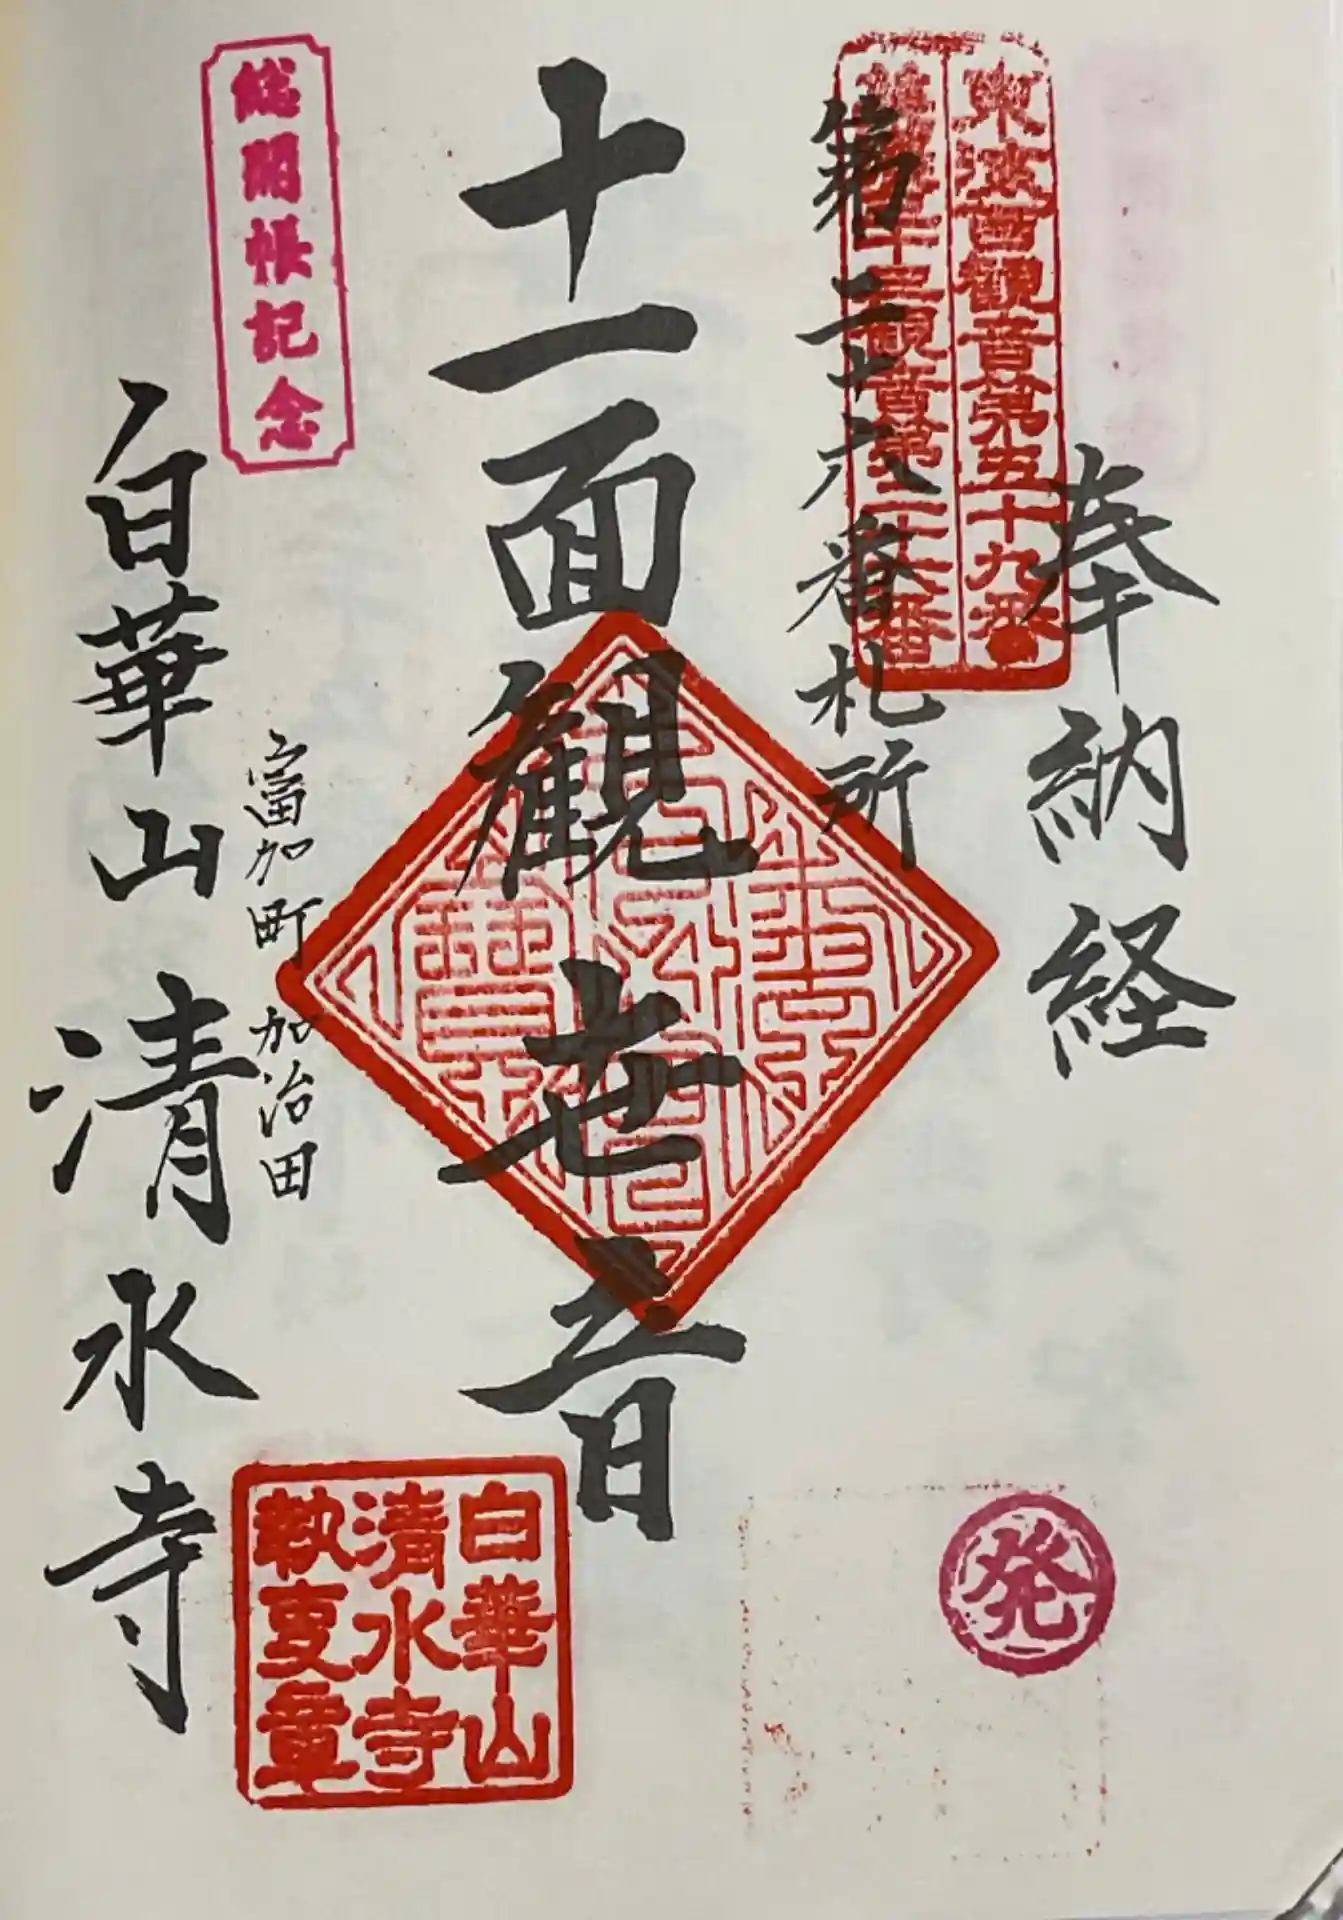 奉納経
東海百観音第五十九番
三十三観音第二十六番
第二十六番札所
十一面観世音
総開帳記念
富加町 加治田
白華山 清水寺
白華山
清水寺
執事章
発